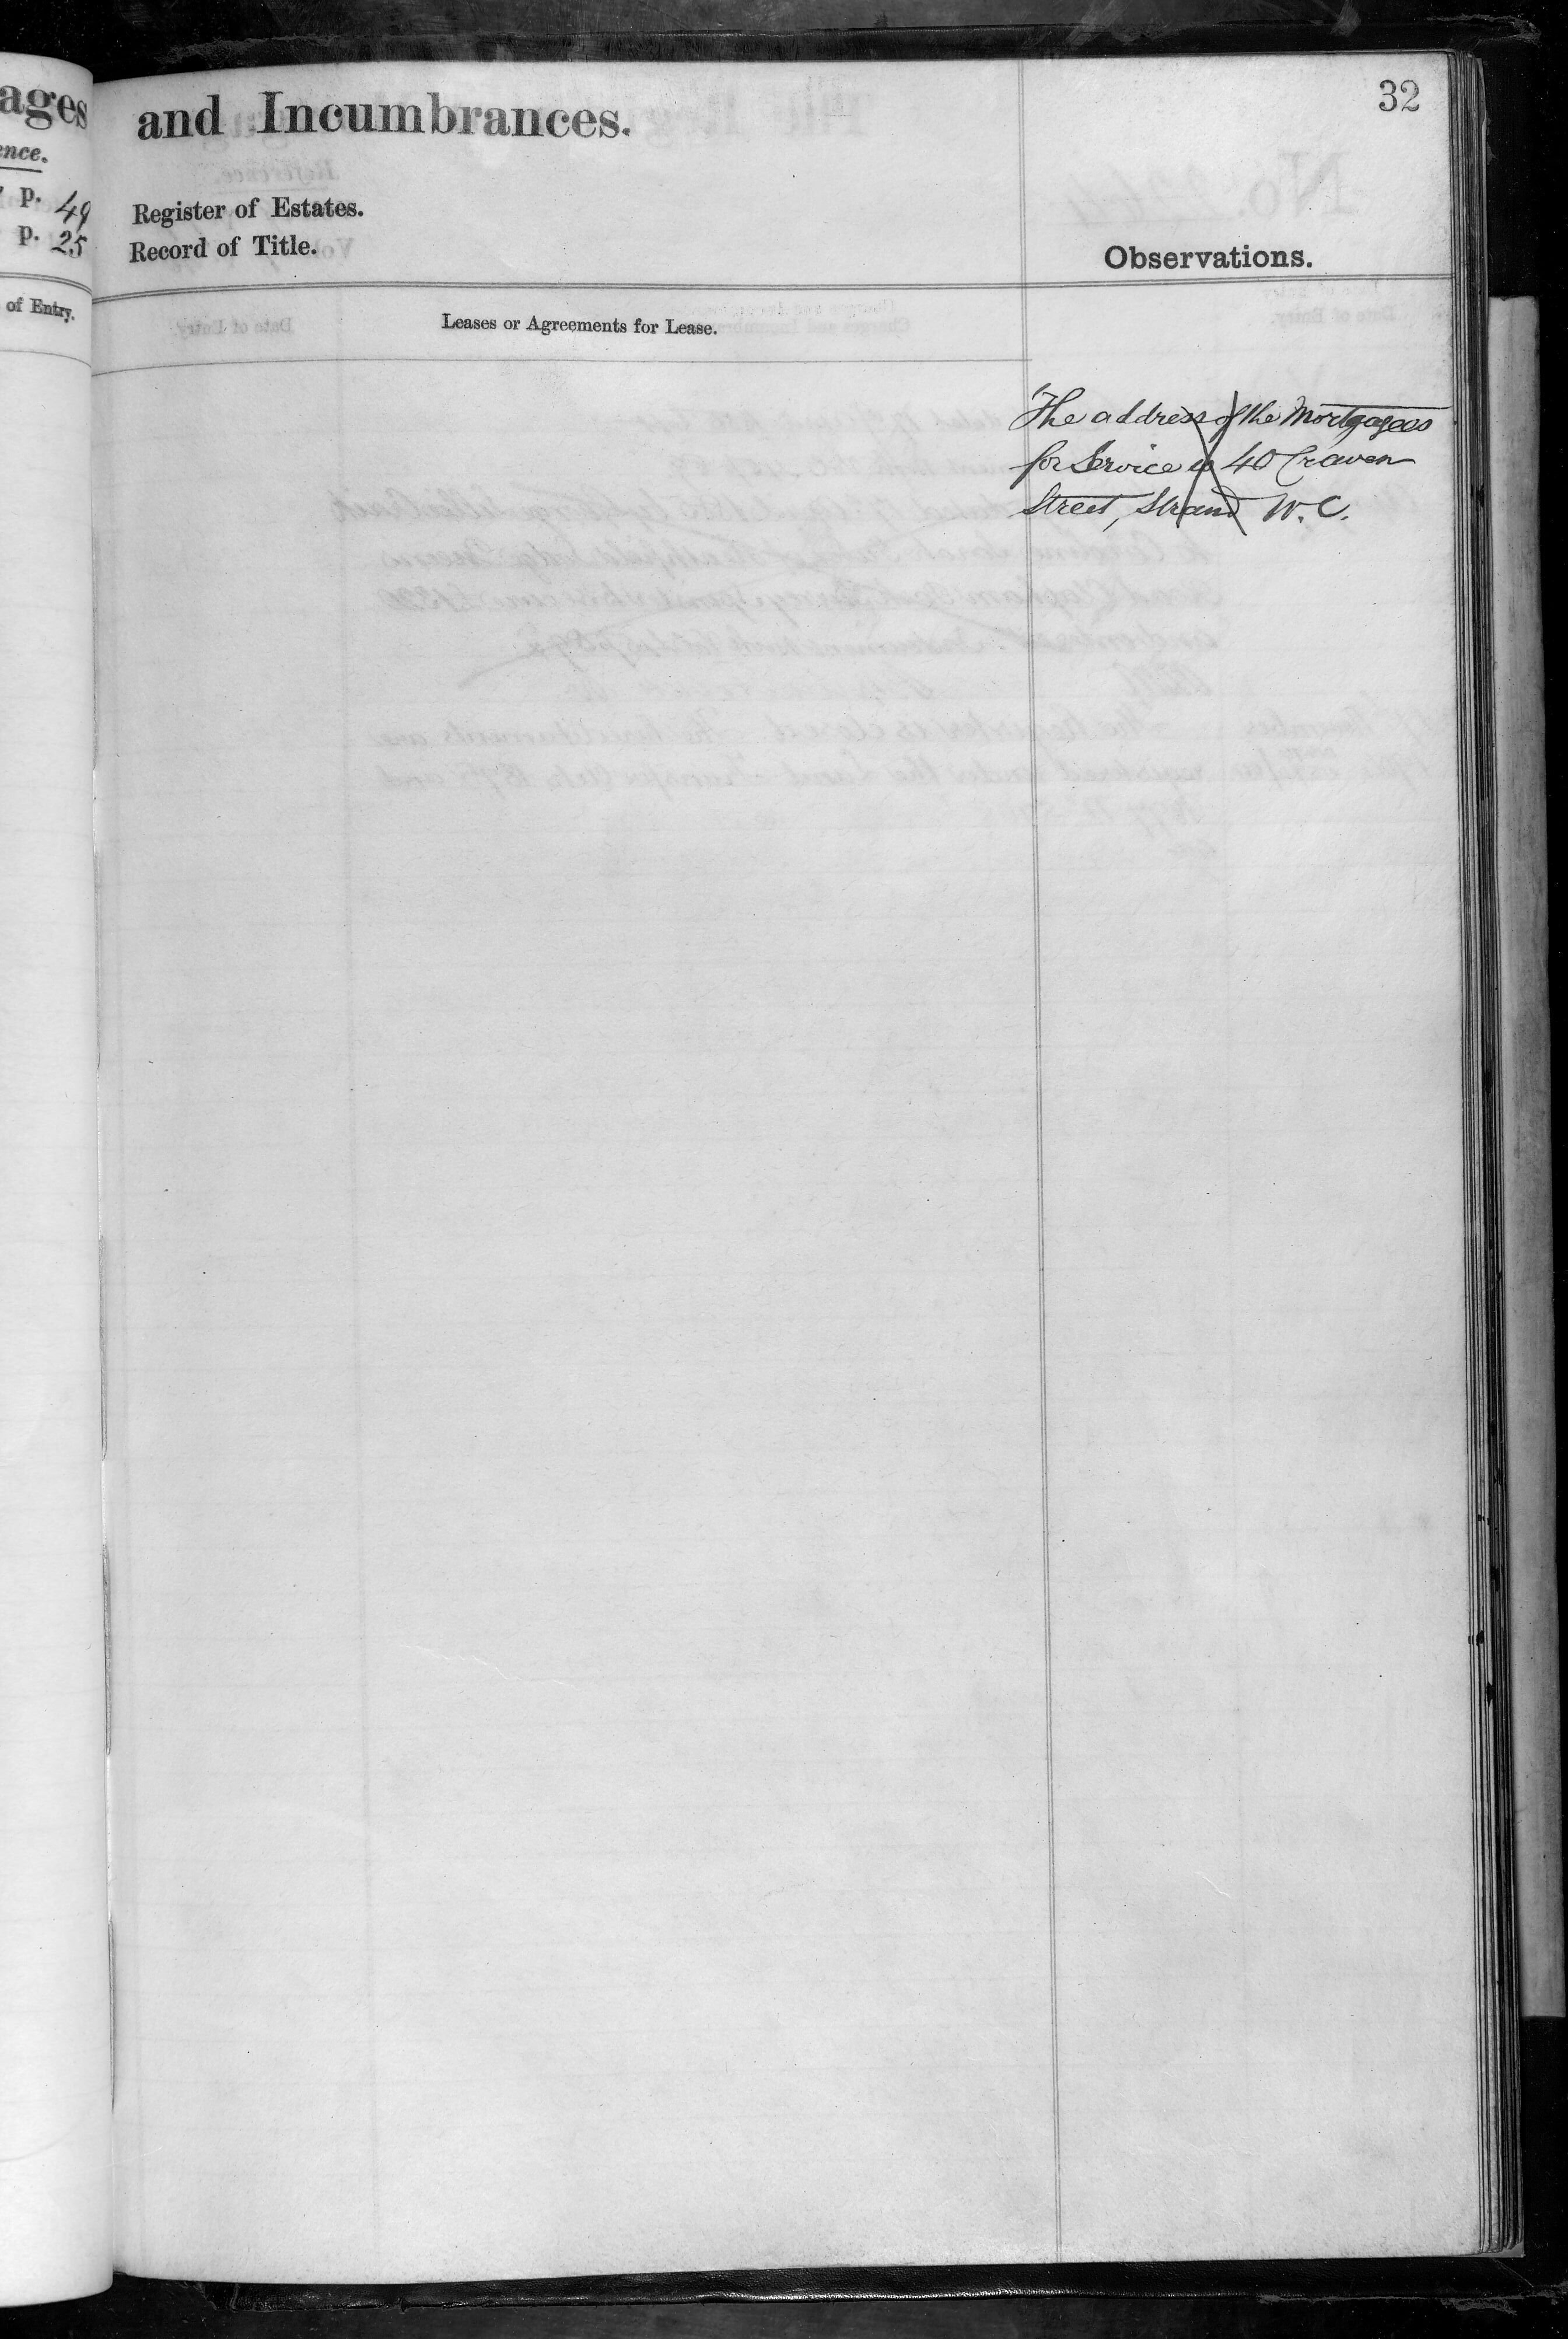 ages
ence.
p. 49
p. 25
of Entry.
32
and Incumbrances.
Register of Estates.
Record of Title.
Observations.
Leases or Agreements for Lease.
The address of the Mortgagees
for Service is 40 Craven
Street, Strand W.C.